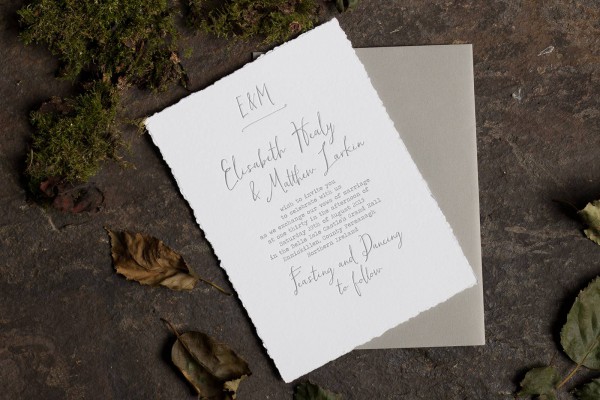 E&M
Elisabeth Healy
& Matthew Larkin
wish to invite you
to celebrate with us
as we exchange our vows of marriage
at one thirty in the afternoon of
Saturday 29th of August 2019
in the Belle Isle Castle's Grand Hall
Enniskillen, County Fermanagh
Northern Ireland
Feasting and Dancing
to follow